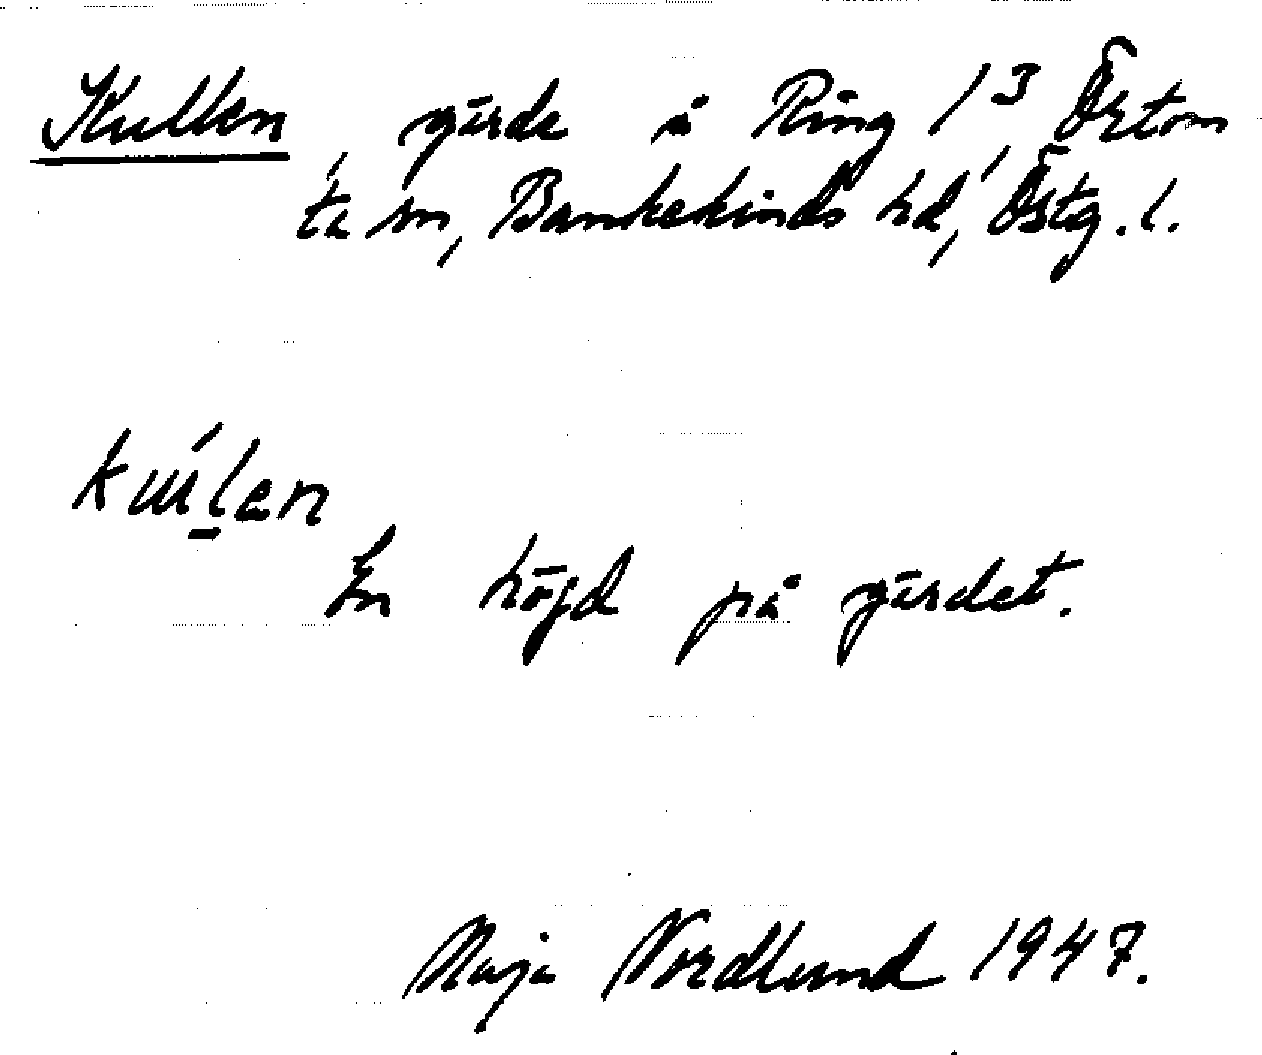 Kullen, gärde å Ring 1³, Örtom
ta sn, Bankekinds hd, Östg. l.
kuḷ́en
En höjd på gärdet.
Maja Nordlund 1947.